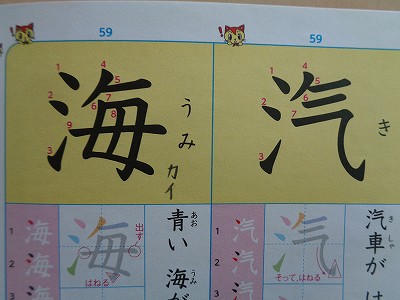 59
海
1
2
3
4
5
6
7
8
9
うみ
カイ
海
海
海
1
2
3
海
出す
はねる
青い 海が
あお
うみ
59
汽
1
2
3
4
5
6
7
き
汽
汽
汽
1
2
汽
そって、はねる
汽車が は
き しゃ